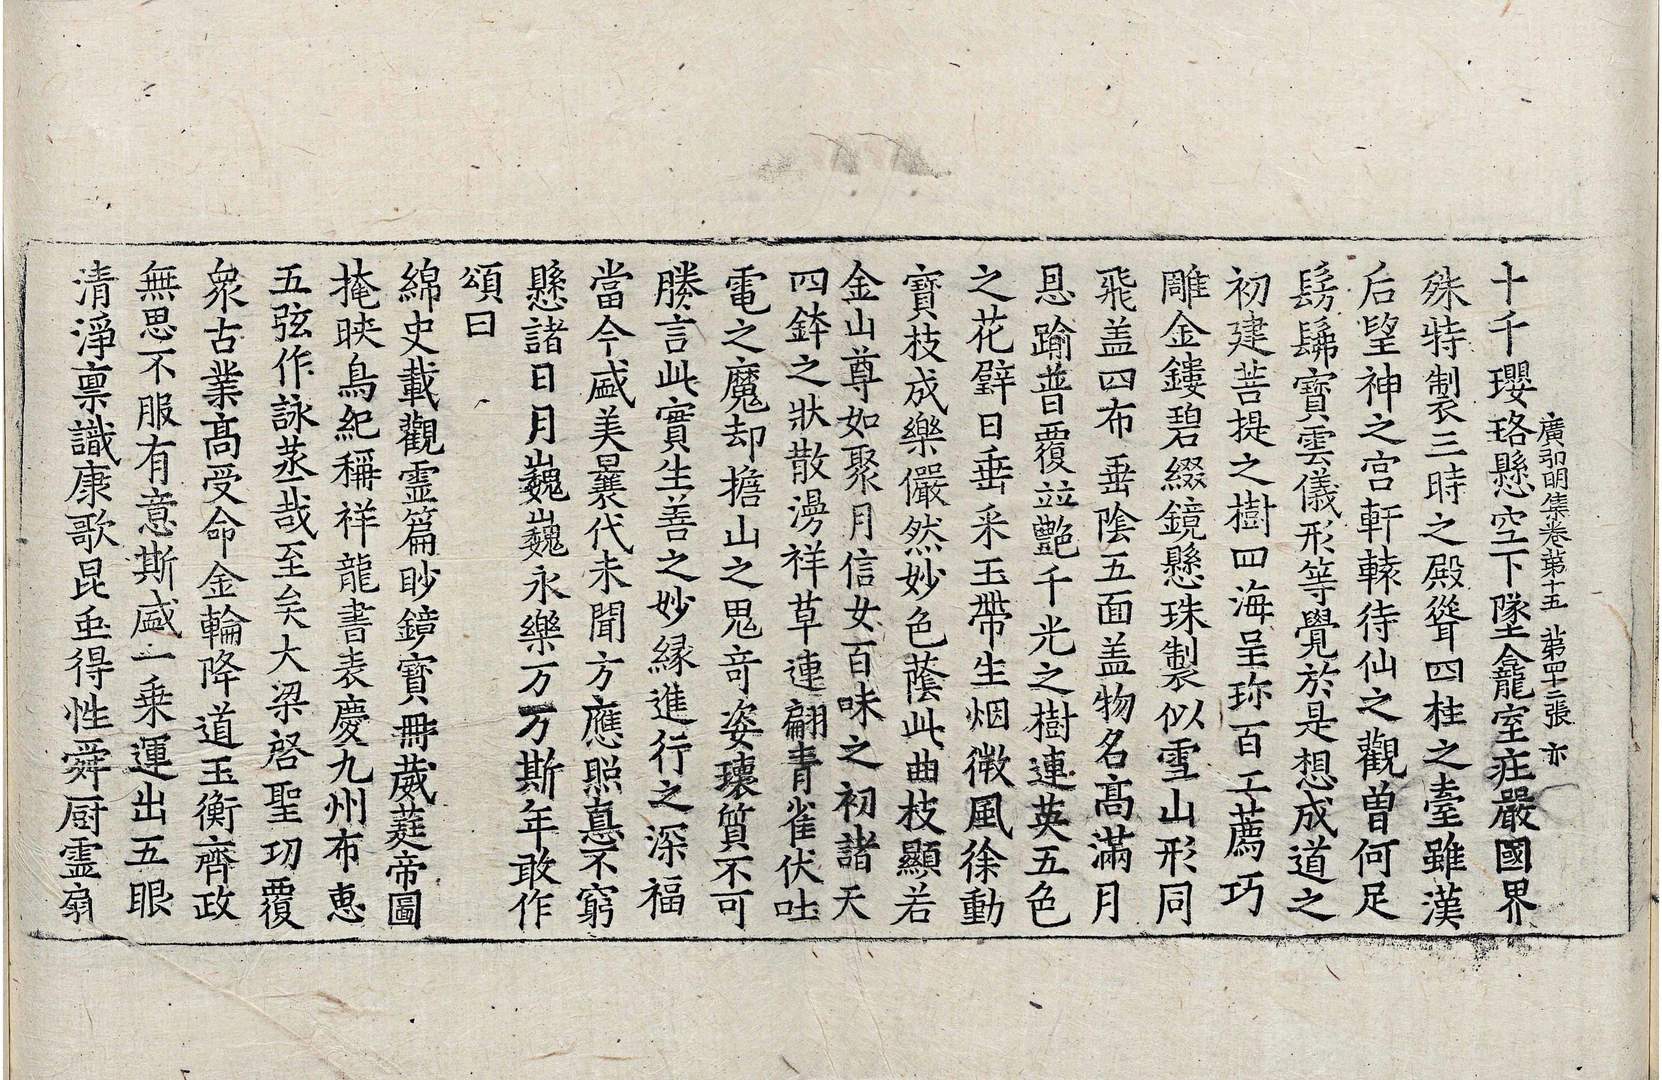 廣弘明集卷第十五 第四十二張 亦
十千瓔珞懸空下墜龕室莊嚴國界
殊特製三時之殿聳四柱之臺雖漢
后望神之宮軒轅待仙之觀曾何足
髣髴寶雲儀形等覺於是想成道之
初建菩提之樹四海呈珎百工薦巧
雕金鏤碧綴鏡懸珠製似雪山形同
飛盖四布垂陰五面盖物名髙滿月
恩踰普覆並艷千光之樹連英五色
之花璧日垂釆玉帶生烟微風徐動
寶枝成樂儼然妙色蔭此曲枝顯若
金山尊如聚月信女百味之初諸天
四鉢之狀散漫祥草連翩青雀伏吐
電之魔却擔山之鬼竒姿瓌質不可
勝言此實生善之妙縁進行之深福
當今盛美曩代未聞方應照惪不窮
懸諸日月巍巍永樂万万斯年敢作
頌曰
綿史載觀霊篇眇鏡寶冊葳蕤帝圖
掩映鳥紀稱祥龍書表慶九州布恵
五弦作詠蒸哉至矣大梁啓聖功覆
衆古業髙受命金輪降道玉衡齊政
無思不服有意斯盛一乗運出五眼
清淨禀識康歌昆虫得性舜厨霊扇